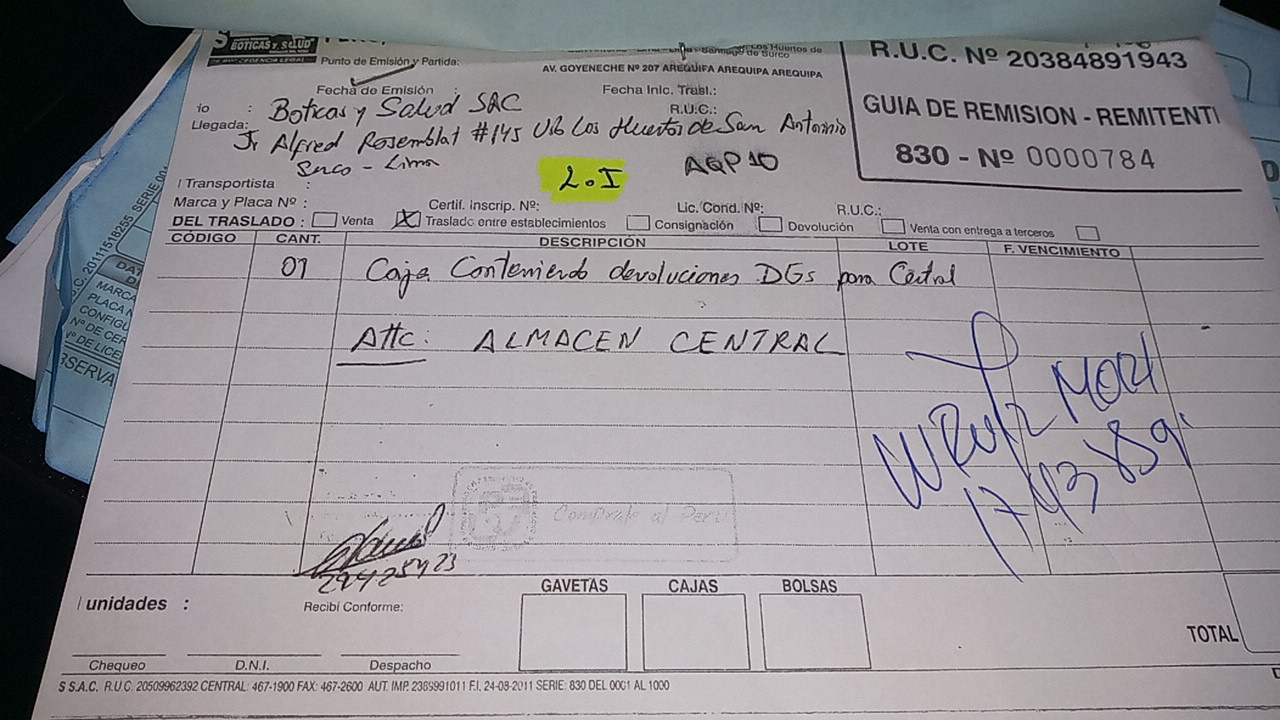 BOTICAS y SALUD
Punto de Emisión y Partida:
Los Huertos de
Santiago de Surco
AV. GOYENECHE Nº 207 AREQUIPA AREQUIPA AREQUIPA
R.U.C. Nº 20384891943
GUIA DE REMISION - REMITENT
830 - Nº 0000784
Fecha de Emisión :
Fecha Inic. Trasl.:
io : Boticas y Salud SAC
R.U.C.:
Llegada: Jr Alfred Rosemblat #145 Urb Los Huertos de San Antonio
Surco - Lima
2.I
AQP 10
Transportista :
Marca y Placa Nº :
Certif. Inscrip. Nº:
Lic. Cond. Nº:
R.U.C.:
DEL TRASLADO : Venta X Traslado entre establecimientos Consignación Devolución Venta con entrega a terceros
CÓDIGO CANT. DESCRIPCIÓN LOTE F. VENCIMIENTO
01 Caja Conteniendo devoluciones DGs para Central
Attc: ALMACEN CENTRAL
W Ruiz
1743789
Comprale al Perú
29425423
unidades :
Recibí Conforme:
GAVETAS CAJAS BOLSAS
TOTAL
Chequeo D.N.I. Despacho
S S.A.C. R.U.C. 20509962392 CENTRAL: 467-1900 FAX: 467-2600 AUT. IMP. 2369991011 F.I. 24-08-2011 SERIE: 830 DEL 0001 AL 1000
DAT
MARCA
PLACA N
CONFIGU
Nº DE CER
Nº DE LICE
SERVA